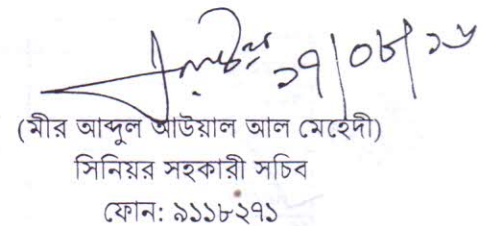 ১৭/০৮/১৬
(মীর আব্দুল আউয়াল আল মেহেদী)
সিনিয়র সহকারী সচিব
ফোন: ৯১১৮২৭১